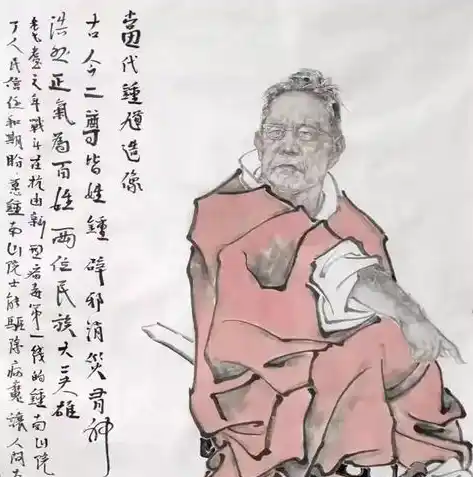 當代鍾馗造像
古今二尊皆姓鍾 辟邪消災有神
浩然正氣為百姓 兩位民族大英雄
耄耋之年戰斗在抗击新型病毒第一线的鍾南山院
了人民信任和期盼 愿鍾南山院士能驅除病魔 讓人间